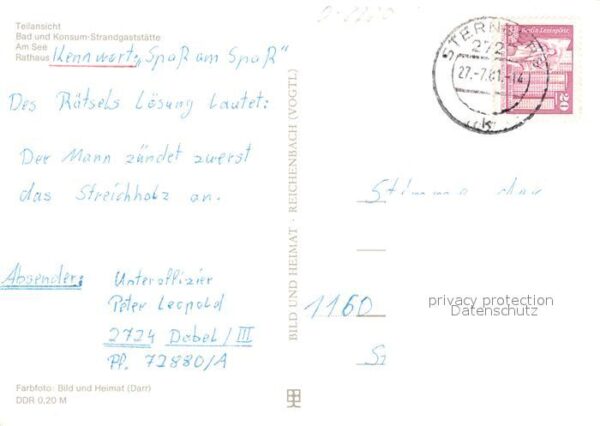 Teilansicht
Bad und Konsum-Strandgaststätte
Am See
Rathaus
Kennwort: „Spaß am Spaß"
Des Rätsels Lösung lautet:
Der Mann zündet zuerst
das Streichholz an.
Absender: Unteroffizier
Peter Leopold
2724 Dabel / III
Pf. 72880/A
Farbfoto: Bild und Heimat (Darr)
DDR 0,20 M
BILD UND HEIMAT · REICHENBACH (VOGTL)
27.-7.81.-14
k
Berlin, Leninplatz
20
1160
privacy protection
Datenschutz